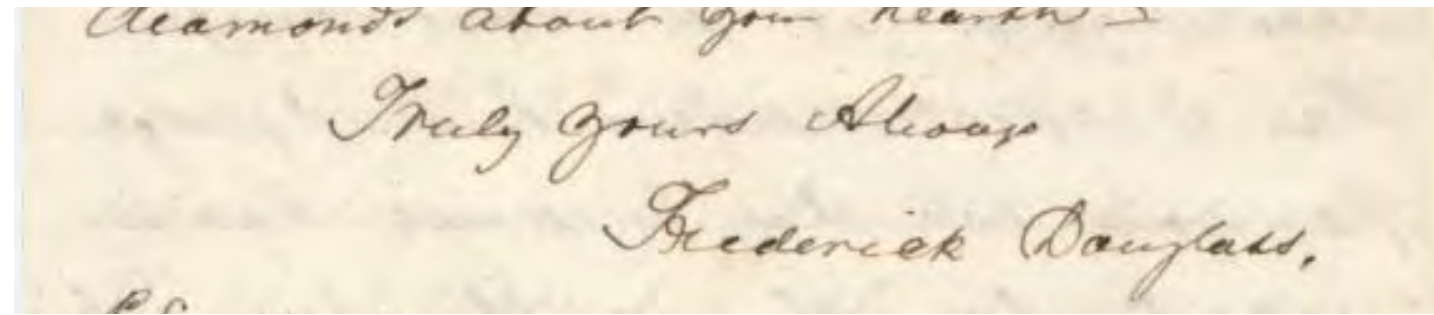 diamonds about your hearth –
Truly yours Always
Frederick Douglass.
P.S.